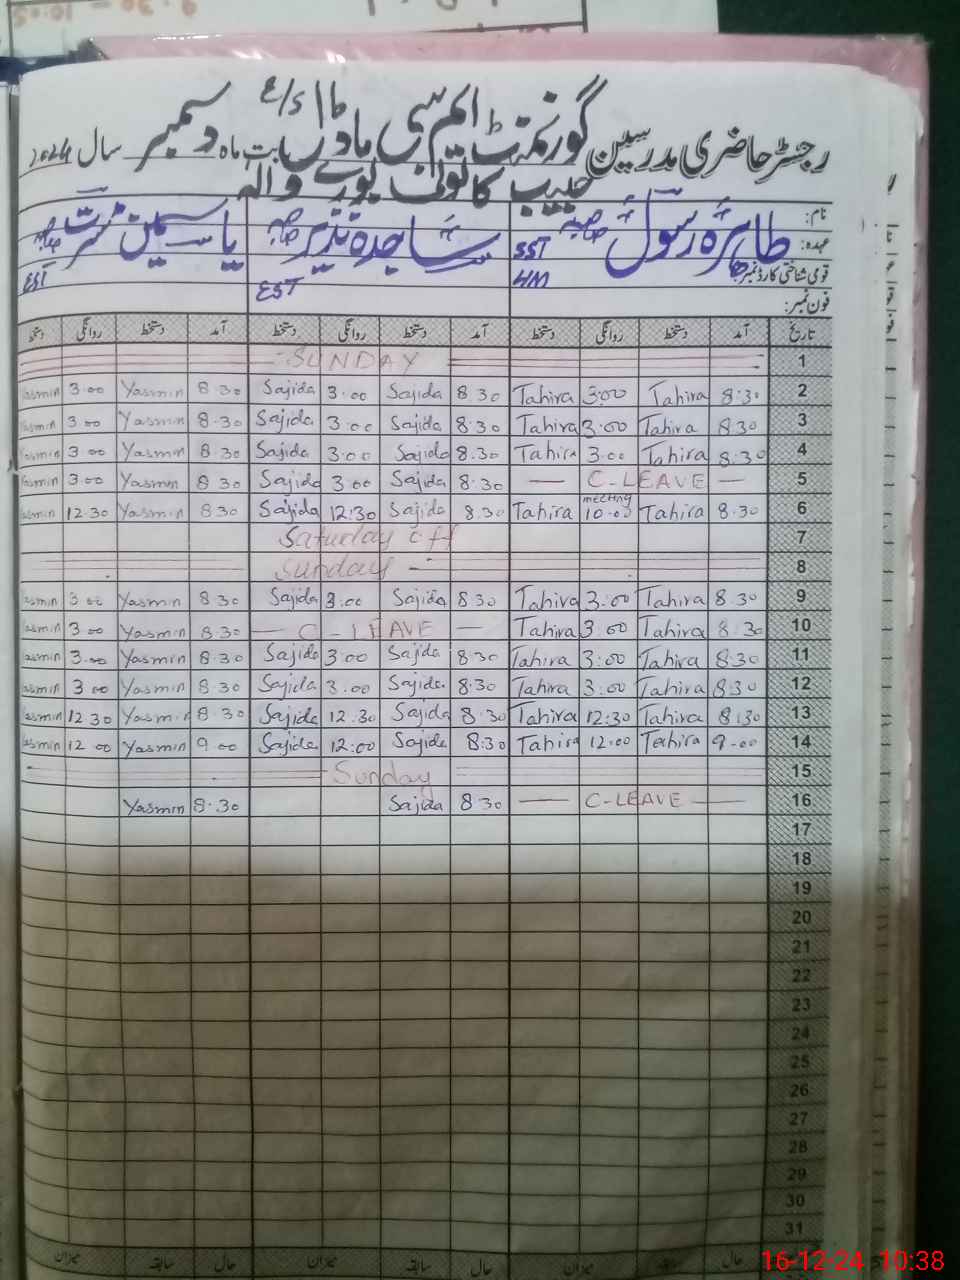 رجسٹر حاضری مدرسین گورنمنٹ ایم سی ماڈل E/S بابت ماہ دسمبر سال 2024
حبیب کالونی بورے والہ
نام: طاہرہ رسول صاحبہ ساجدہ نذیر صاحبہ یاسمین صاحبہ
عہدہ: SST EST EST
HM
قومی شناختی کارڈ نمبر:
فون نمبر:
تاریخ آمد دستخط روانگی دستخط آمد دستخط روانگی دستخط آمد دستخط روانگی دستخط
1 SUNDAY
2 8:30 Tahira 3:00 Tahira 8.30 Sajida 3.00 Sajida 8.30 Yasmin 3.00 Yasmin
3 8.30 Tahira 3.00 Tahira 8.30 Sajida 3.00 Sajida 8.30 Yasmin 3.00 Yasmin
4 8.30 Tahira 3.00 Tahira 8.30 Sajida 3.00 Sajida 8.30 Yasmin 3.00 Yasmin
5 C-LEAVE 8.30 Sajida 3.00 Sajida 8.30 Yasmin 3.00 Yasmin
6 8.30 Tahira meeting 10.00 Tahira 8.30 Sajida 12:30 Sajida 8.30 Yasmin 12.30 Yasmin
7 Saturday off
8 Sunday
9 8.30 Tahira 3.00 Tahira 8.30 Sajida 3.00 Sajida 8.30 Yasmin 3.00 Yasmin
10 8.30 Tahira 3.00 Tahira C-LEAVE 8.30 Yasmin 3.00 Yasmin
11 8.30 Tahira 3.00 Tahira 8.30 Sajida 3.00 Sajida 8.30 Yasmin 3.00 Yasmin
12 8.30 Tahira 3.00 Tahira 8.30 Sajida 3.00 Sajida 8.30 Yasmin 3.00 Yasmin
13 8:30 Tahira 12:30 Tahira 8.30 Sajida 12.30 Sajida 8.30 Yasmin 12.30 Yasmin
14 9.00 Tahira 12:00 Tahira 8:30 Sajida 12:00 Sajida 9.00 Yasmin 12.00 Yasmin
15 Sunday
16 C-LEAVE 8.30 Sajida 8.30 Yasmin
17
18
19
20
21
22
23
24
25
26
27
28
29
30
31
حال سابقہ میزان حال سابقہ میزان حال سابقہ میزان
16-12-24 10:38